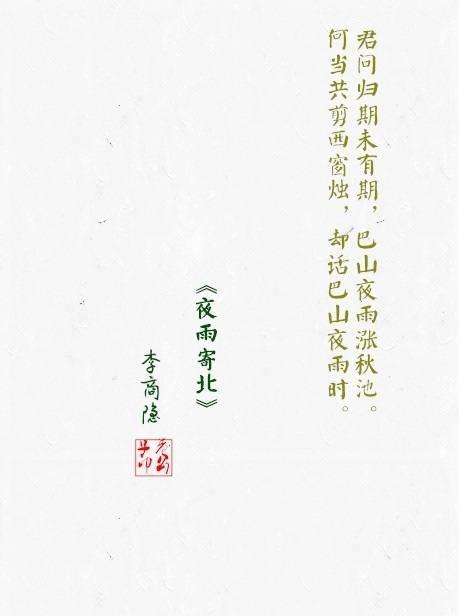 君问归期未有期，巴山夜雨涨秋池。
何当共剪西窗烛，却话巴山夜雨时。
《夜雨寄北》
李商隐